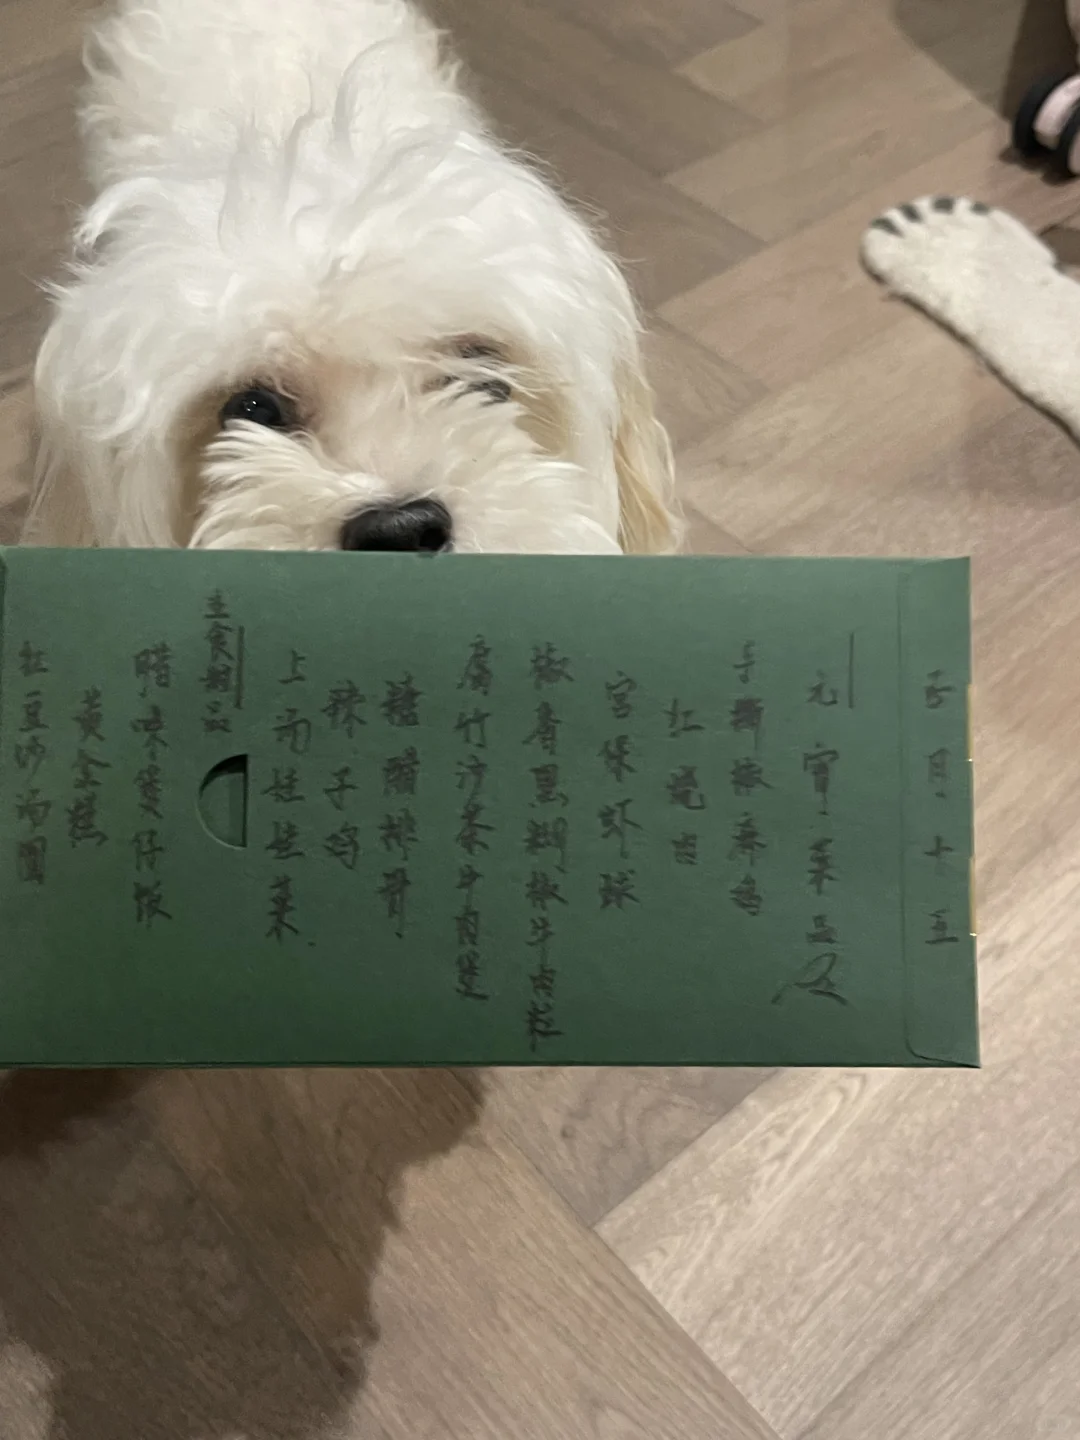 正月十五
元宵菜品
手撕椒麻鸡
红烧肉
宫保虾球
椒香黑胡椒牛肉粒
腐竹沙茶牛肉煲
糖醋排骨
辣子鸡
上汤娃娃菜.
主食甜品
腊味煲仔饭
黄金糕
红豆沙汤圆